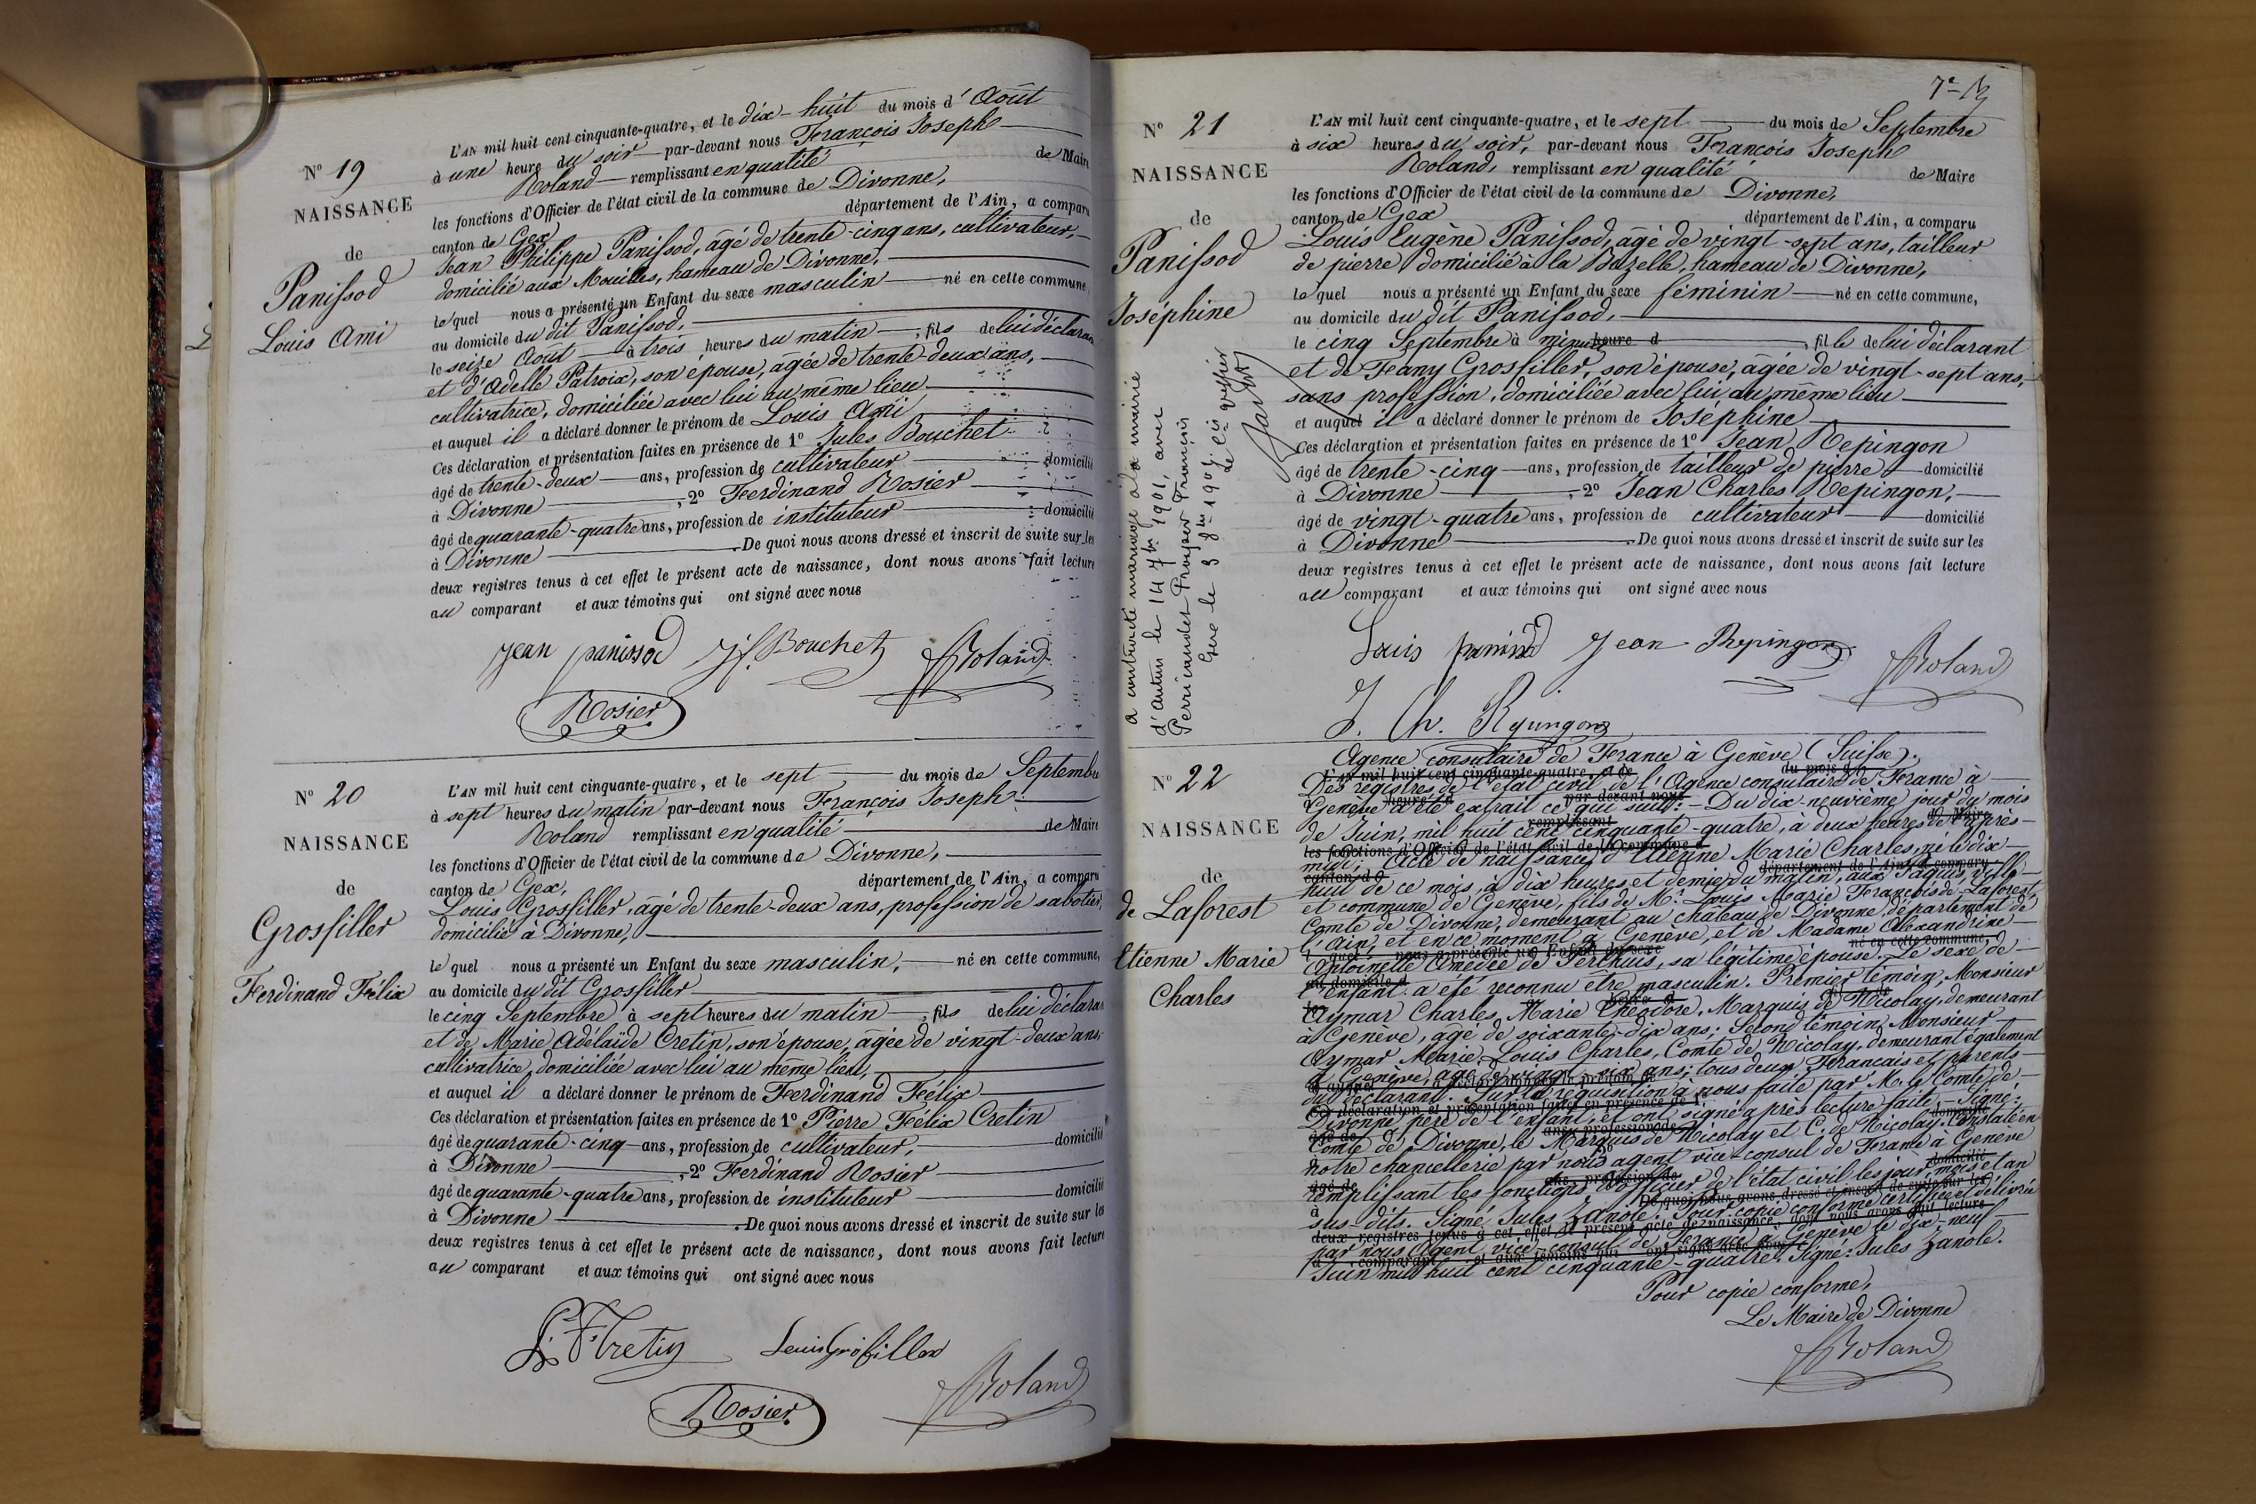 Nº 19
NAISSANCE
de
Panissod
Louis Ami
L'AN mil huit cent cinquante-quatre, et le dix-huit du mois d'Août
à une heure du soir par-devant nous François Joseph
Roland remplissant en qualité de Maire
les fonctions d'Officier de l'état civil de la commune de Divonne,
canton de Gex département de l'Ain, a comparu
Jean Philippe Panissod, âgé de trente-cinq ans, cultivateur,
domicilié aux Mouilles, hameau de Divonne,
lequel nous a présenté un Enfant du sexe masculin né en cette commune,
au domicile du dit Panissod,
le seize Août à trois heures du matin, fils de lui déclarant
et d'Adelle Patroix, son épouse, âgée de trente-deux ans,
cultivatrice, domiciliée avec lui au même lieu
et auquel il a déclaré donner le prénom de Louis Ami
Ces déclaration et présentation faites en présence de 1º Jules Bouchet
âgé de trente-deux ans, profession de cultivateur domicilié
à Divonne, 2º Ferdinand Rosier
âgé de quarante-quatre ans, profession de instituteur domicilié
à Divonne. De quoi nous avons dressé et inscrit de suite sur les
deux registres tenus à cet effet le présent acte de naissance, dont nous avons fait lecture
au comparant et aux témoins qui ont signé avec nous
Jean panissod Jf. Bouchet Roland
Rosier
Nº 20
NAISSANCE
de
Grosfiller
Ferdinand Félix
L'AN mil huit cent cinquante-quatre, et le sept du mois de Septembre
à sept heures du matin par-devant nous François Joseph
Roland remplissant en qualité de Maire
les fonctions d'Officier de l'état civil de la commune de Divonne,
canton de Gex, département de l'Ain, a comparu
Louis Grosfiller, âgé de trente-deux ans, profession de sabotier,
domicilié à Divonne,
lequel nous a présenté un Enfant du sexe masculin, né en cette commune,
au domicile du dit Grosfiller
le cinq Septembre à sept heures du matin, fils de lui déclarant
et de Marie Adélaïde Cretin, son épouse, âgée de vingt-deux ans,
cultivatrice, domiciliée avec lui au même lieu,
et auquel il a déclaré donner le prénom de Ferdinand Félix
Ces déclaration et présentation faites en présence de 1º Pierre Félix Cretin
âgé de quarante-cinq ans, profession de cultivateur, domicilié
à Divonne, 2º Ferdinand Rosier
âgé de quarante-quatre ans, profession de instituteur domicilié
à Divonne. De quoi nous avons dressé et inscrit de suite sur les
deux registres tenus à cet effet le présent acte de naissance, dont nous avons fait lecture
au comparant et aux témoins qui ont signé avec nous
P. F. Cretin Louis Grosfiller
Rosier Roland
Nº 21
NAISSANCE
de
Panissod
Joséphine
a contracté mariage à la mairie
d'autun le 14 7bre 1901, avec
Perricaudet Prosper François
L'AN mil huit cent cinquante-quatre, et le sept du mois de Septembre
à six heures du soir, par-devant nous François Joseph
Roland, remplissant en qualité de Maire
les fonctions d'Officier de l'état civil de la commune de Divonne,
canton de Gex département de l'Ain, a comparu
Louis Eugène Panissod, âgé de vingt-sept ans, tailleur
de pierre, domicilié à la Bazelle, hameau de Divonne,
lequel nous a présenté un Enfant du sexe féminin né en cette commune,
au domicile du dit Panissod,
le cinq Septembre à minuit heure d, fille de lui déclarant
et de Fany Grosfiller, son épouse, âgée de vingt-sept ans,
sans profession, domiciliée avec lui au même lieu
et auquel il a déclaré donner le prénom de Joséphine
Ces déclaration et présentation faites en présence de 1º Jean Repingon
âgé de trente-cinq ans, profession de tailleur de pierre domicilié
à Divonne, 2º Jean Charles Repingon,
âgé de vingt-quatre ans, profession de cultivateur domicilié
à Divonne. De quoi nous avons dressé et inscrit de suite sur les
deux registres tenus à cet effet le présent acte de naissance, dont nous avons fait lecture
au comparant et aux témoins qui ont signé avec nous
Louis panissod Jean Repingon Roland
J. Ch. Repingon
Nº 22
NAISSANCE
de
de Laforest
Etienne Marie
Charles
Agence consulaire de France à Genève (Suisse).
Des registres de l'état civil de l'Agence consulaire de France à
Genève a été extrait ce qui suit: Du dix-neuvième jour du mois
de Juin, mil huit cent cinquante-quatre, à deux heures de l'après-
midi. Acte de naissance d'Etienne Marie Charles, né le dix-
huit de ce mois, à dix heures et demie du matin, aux Paquis, ville
et commune de Genève, fils de Mr. Louis Marie François de Laforest,
Comte de Divonne, demeurant au château de Divonne, département de
l'Ain, et en ce moment à Genève, et de Madame Alexandrine
Antoinette Amédée de Perthuis, sa légitime épouse. Le sexe de
l'enfant a été reconnu être masculin. Premier témoin, Monsieur
Aymar Charles, Marie Théodore, Marquis de Nicolay, demeurant
à Genève, âgé de soixante-dix ans; Second témoin, Monsieur
Aymar Marie Louis Charles, Comte de Nicolay, demeurant également
à Genève, âgé de vingt-six ans; tous deux Français et parents
du déclarant. Sur la réquisition à nous faite par M. le Comte de
Divonne, père de l'enfant et ont signé après lecture faite. Signé:
Comte de Divonne, le Marquis de Nicolay et C. de Nicolay. Constaté en
notre chancellerie par nous agent vice-consul de France à Genève
remplissant les fonctions d'officier de l'état civil les jour, mois et an
sus-dits. Signé Jules Zanole. Pour copie conforme certifiée et délivrée
par nous Agent vice-consul de France à Genève le dix-neuf
Juin mil huit cent cinquante-quatre. Signé: Jules Zanole.
Pour copie conforme,
Le Maire de Divonne
Roland